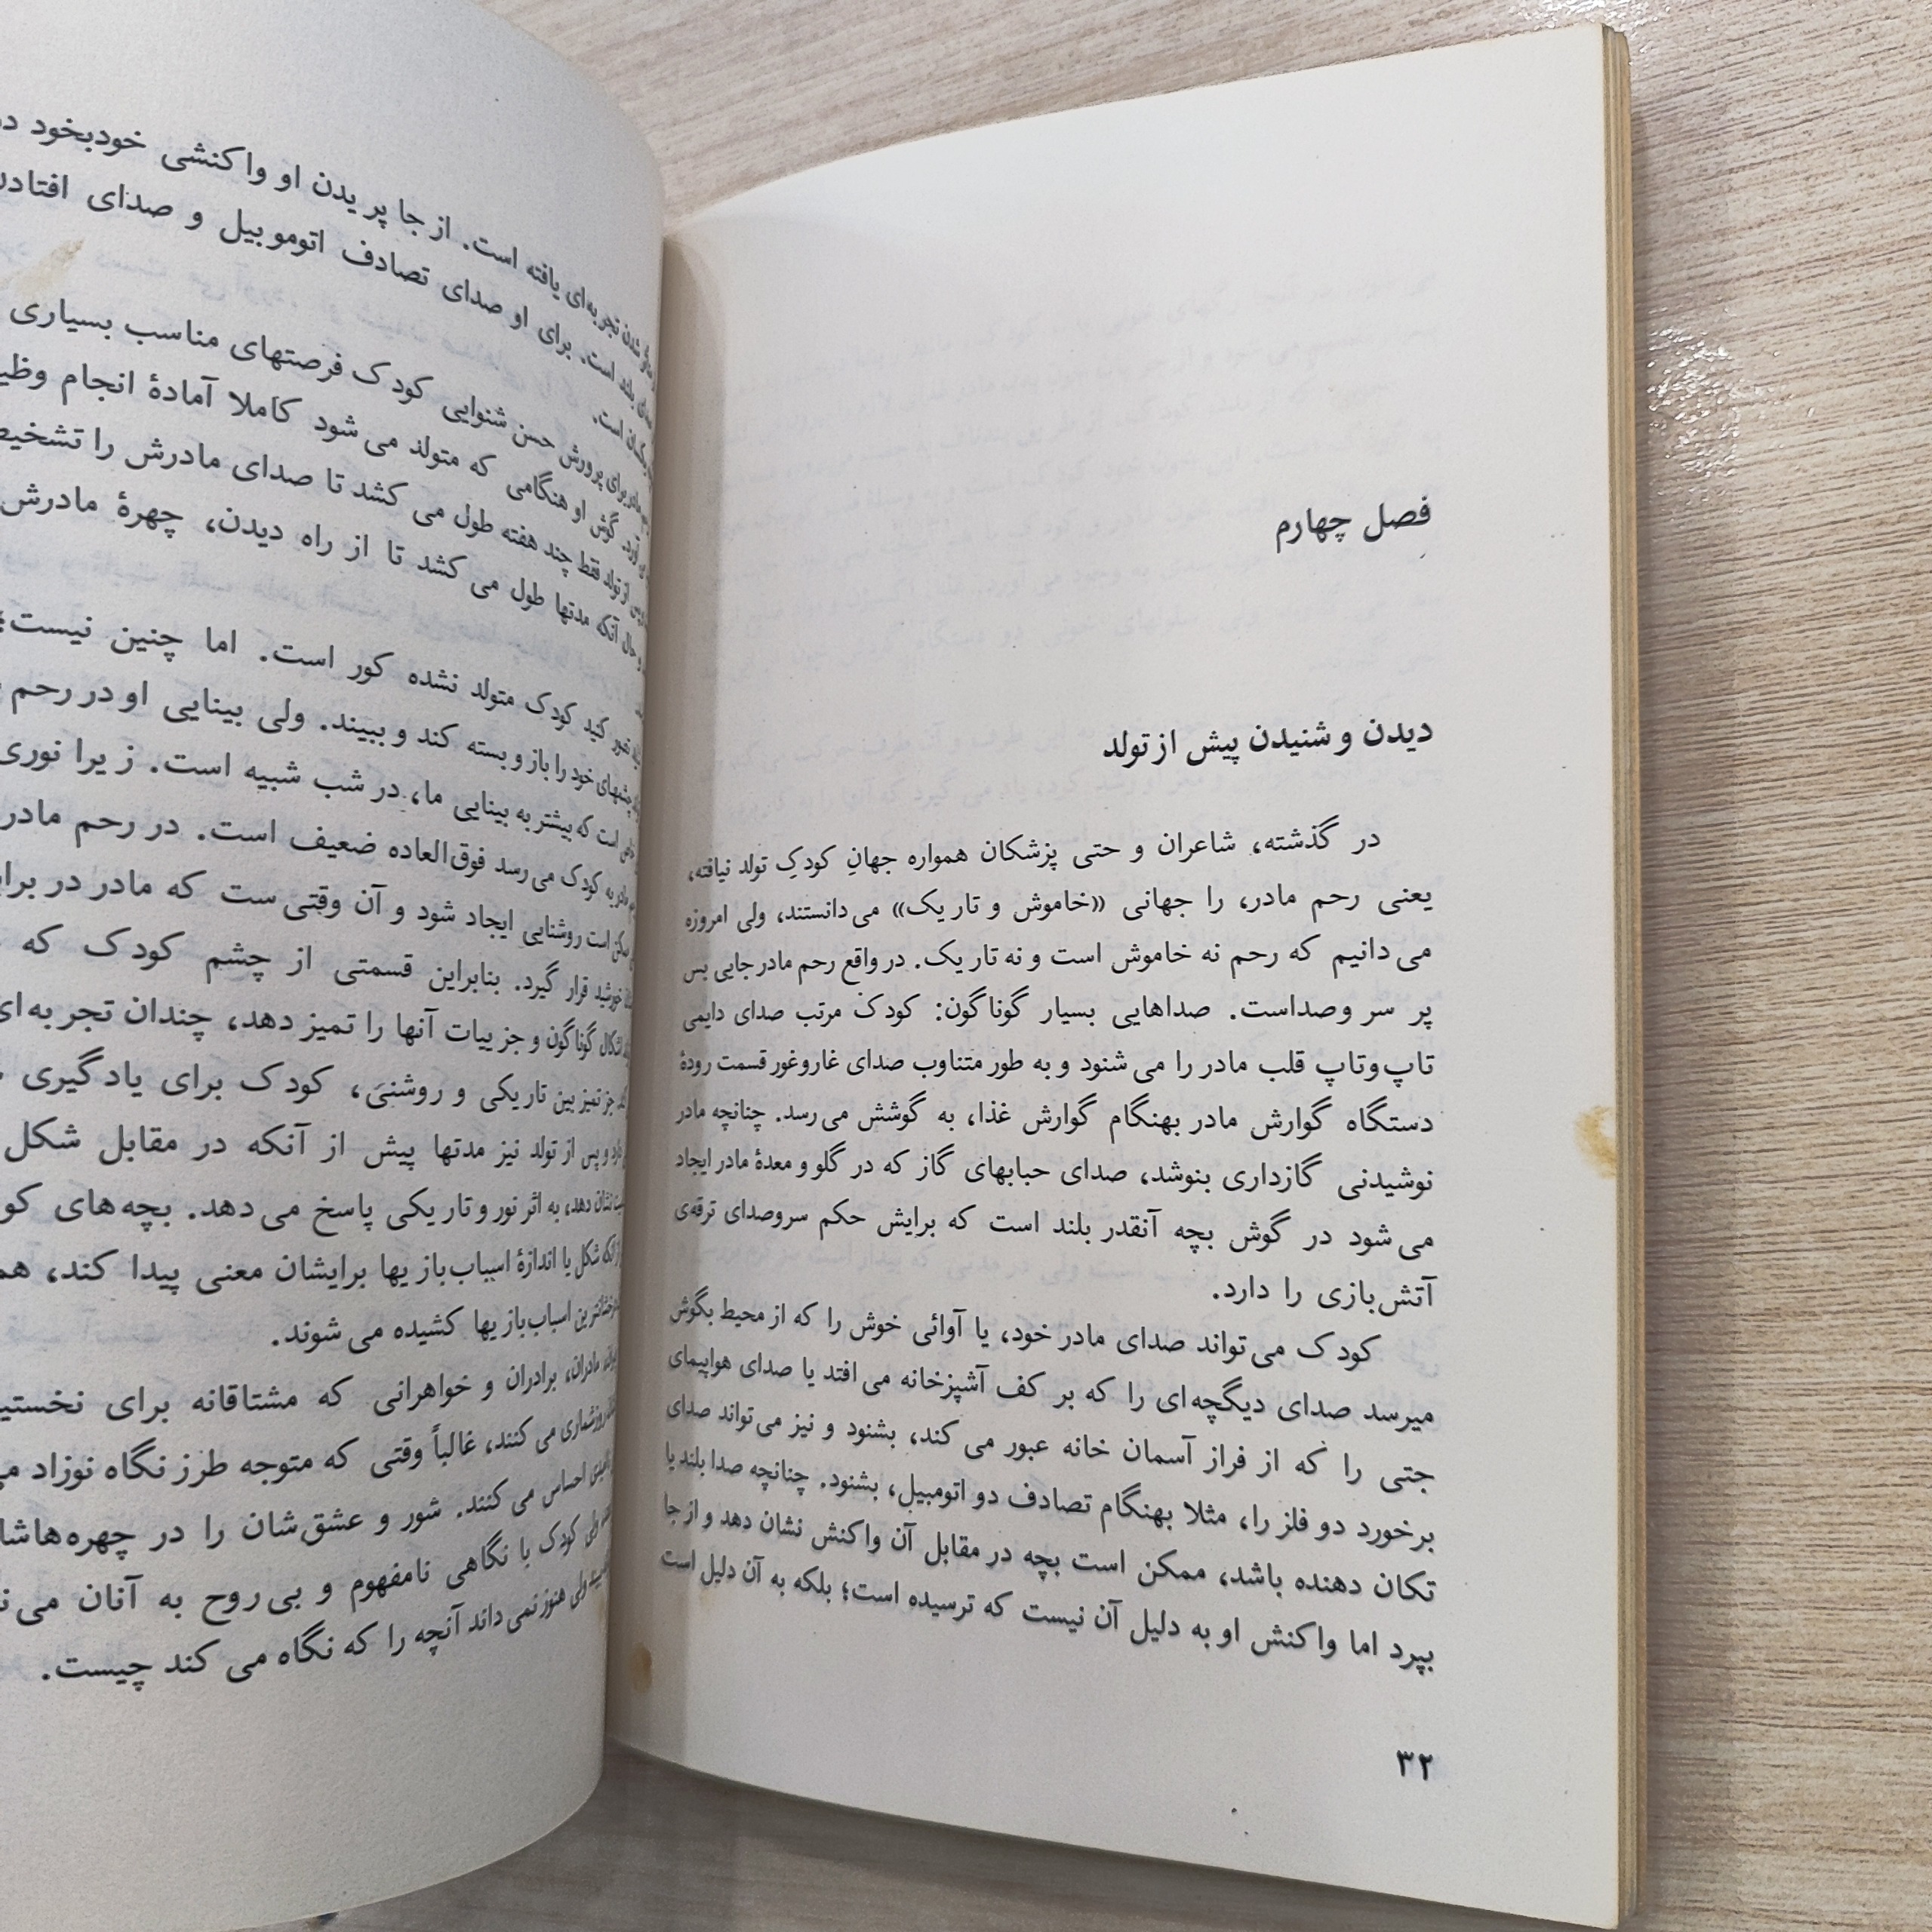 فصل چهارم
دیدن و شنیدن پیش از تولد
در گذشته، شاعران و حتی پزشکان همواره جهانِ کودکِ تولد نیافته،
یعنی رحم مادر، را جهانی «خاموش و تاریک» می‌دانستند، ولی امروزه
می‌دانیم که رحم نه خاموش است و نه تاریک. در واقع رحم مادر جایی بس
پر سر وصداست. صداهایی بسیار گوناگون: کودک مرتب صدای دایمی
تاپ‌وتاپ قلب مادر را می‌شنود و به طور متناوب صدای غاروغور قسمت رودهٔ
دستگاه گوارش مادر بهنگام گوارش غذا، به گوشش می‌رسد. چنانچه مادر
نوشیدنی گازداری بنوشد، صدای حبابهای گاز که در گلو و معدهٔ مادر ایجاد
می‌شود در گوش بچه آنقدر بلند است که برایش حکم سروصدای ترقه‌ی
آتش‌بازی را دارد.
کودک می‌تواند صدای مادر خود، یا آوائی خوش را که از محیط بگوش
میرسد صدای دیگچه‌ای را که بر کف آشپزخانه می‌افتد یا صدای هواپیمای
جتی را که از فراز آسمان خانه عبور می‌کند، بشنود و نیز می‌تواند صدای
برخورد دو فلز را، مثلا بهنگام تصادف دو اتومبیل، بشنود. چنانچه صدا بلند یا
تکان دهنده باشد، ممکن است بچه در مقابل آن واکنش نشان دهد و از جا
بپرد اما واکنش او به دلیل آن نیست که ترسیده است؛ بلکه به آن دلیل است
۳۲
شدن تجربه‌ای یافته است. از جا پریدن او واکنشی خودبخود
بلند است. برای او صدای تصادف اتوموبیل و صدای
یکسان است.
برای پرورش حس شنوایی کودک فرصتهای مناسب بسیاری
آورد. گوش او هنگامی که متولد می‌شود کاملا آمادهٔ انجام
از تولد فقط چند هفته طول می‌کشد تا صدای مادرش را
حال آنکه مدتها طول می‌کشد تا از راه دیدن، چهرهٔ مادرش
کنید کودک متولد نشده کور است. اما چنین نیست؛
چشمهای خود را باز و بسته کند و ببیند. ولی بینایی او در رحم
است که بیشتر به بینایی ما، در شب شبیه است. زیرا نوری
مادر به کودک می‌رسد فوق‌العاده ضعیف است. در رحم مادر
ممکن است روشنایی ایجاد شود و آن وقتی‌ست که مادر در
خورشید قرار گیرد. بنابراین قسمتی از چشم کودک که
اشکال گوناگون و جزییات آنها را تمیز دهد، چندان تجربه‌ای
جز تمیز بین تاریکی و روشنی، کودک برای یادگیری
و پس از تولد نیز مدتها پیش از آنکه در مقابل شکل
نشان دهد، به اثر نور و تاریکی پاسخ می‌دهد. بچه‌های
شکل یا اندازهٔ اسباب‌بازیها برایشان معنی پیدا کند،
اسباب‌بازیها کشیده می‌شوند.
مادران، برادران و خواهرانی که مشتاقانه برای
روزشماری می‌کنند، غالباً وقتی که متوجه طرز نگاه نوزاد
احساس می‌کنند. شور و عشق‌شان را در
ولی کودک با نگاهی نامفهوم و بی‌روح به آنان
ولی هنوز نمی‌داند آنچه را که نگاه می‌کند چیست.